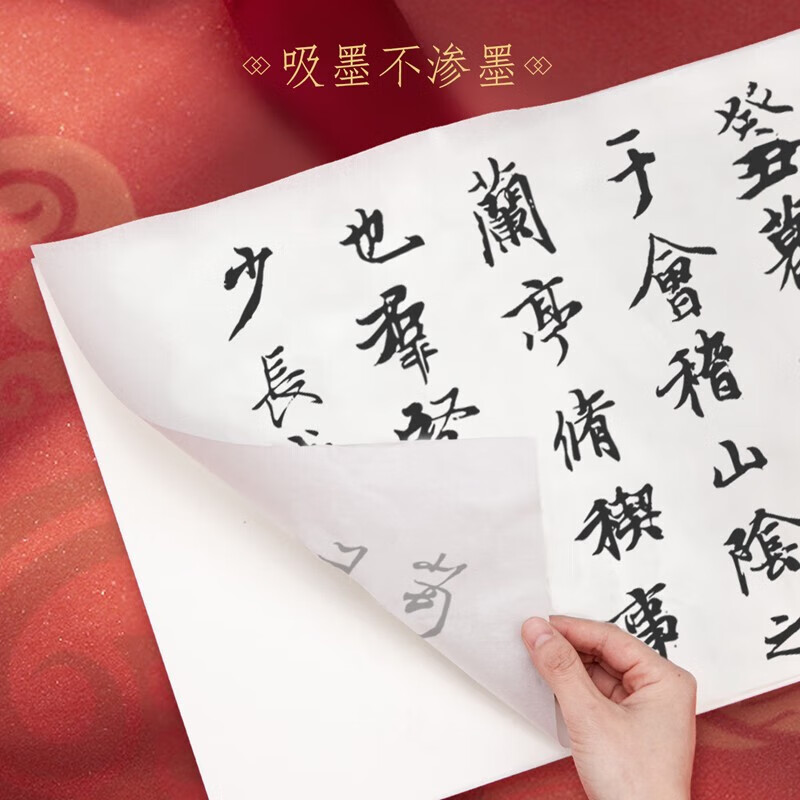 吸墨不渗墨
癸丑暮
于會稽山陰之
蘭亭脩稧事
也羣
少長